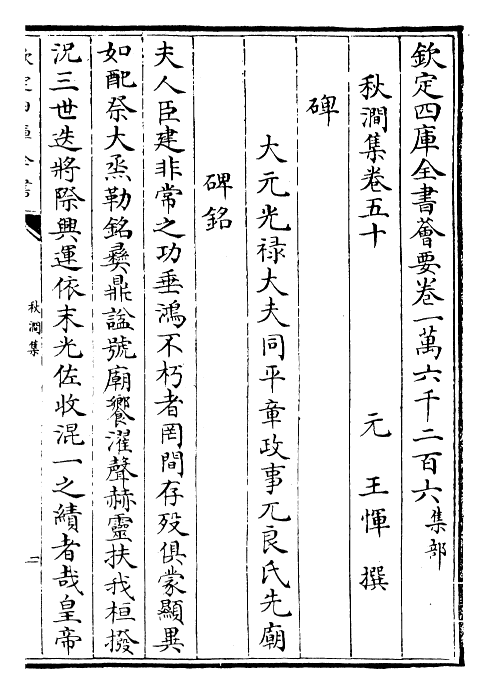 欽定四庫全書薈要卷一萬六千二百六集部
秋澗集卷五十　元　王惲　撰
碑
大元光禄大夫同平章政事兀良氏先廟
碑銘
夫人臣建非常之功垂鴻不朽者罔間存殁俱蒙顯異
如配祭大烝勒銘彞鼎諡號廟饗濯聲赫靈扶我桓撥
況三世迭將際興運依末光佐收混一之績者哉皇帝
秋澗集